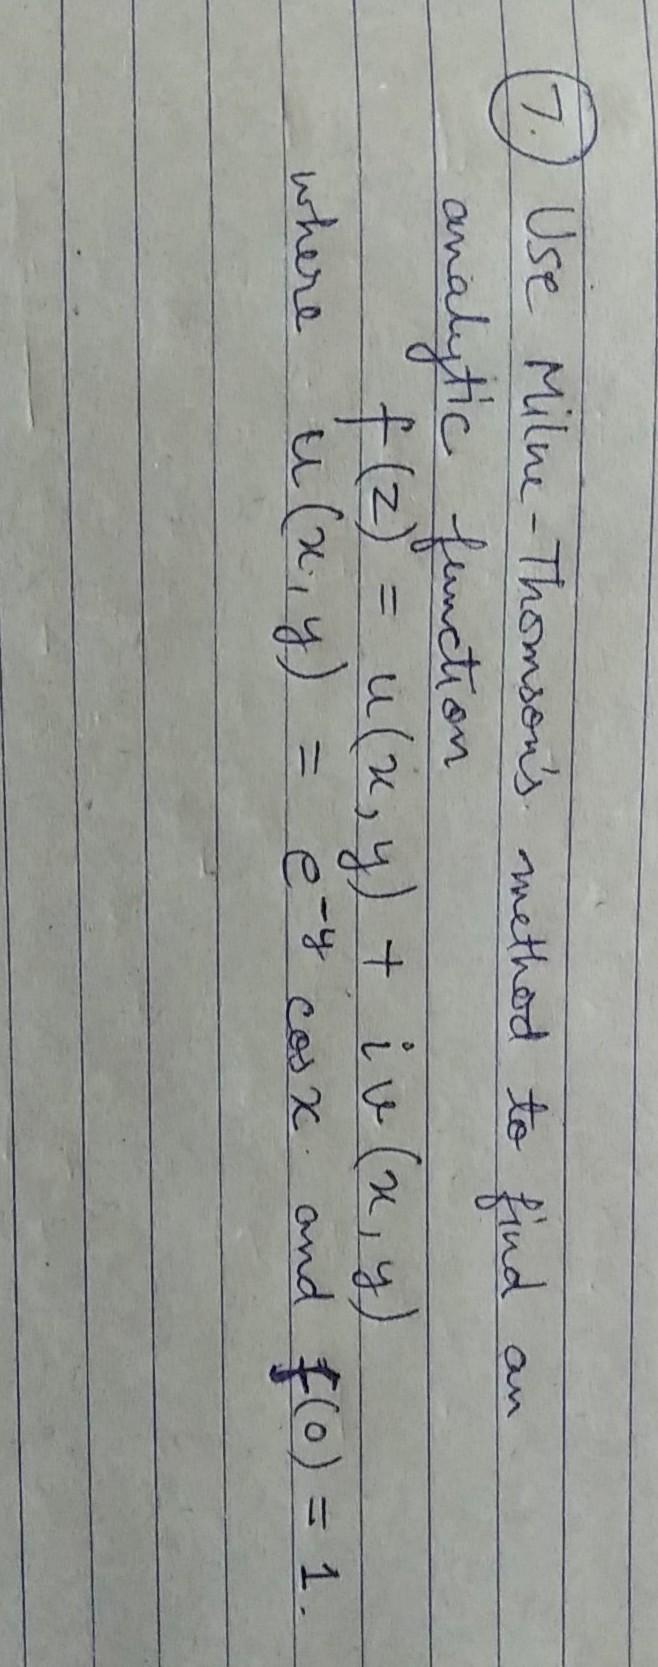 7. Use Milne-Thomson's method to find an
analytic function
f(z) = u(x, y) + i v(x, y)
where u(x, y) = e^{-y} cos x and f(0) = 1.